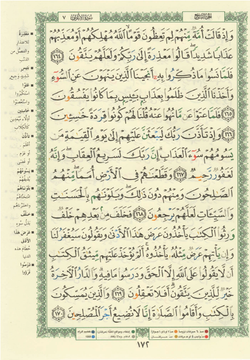 الجزء التاسع
سورة الأعراف ٧
وَإِذْ قَالَتْ أُمَّةٌ مِّنْهُمْ لِمَ تَعِظُونَ قَوْمًا ٱللَّهُ مُهْلِكُهُمْ أَوْ مُعَذِّبُهُمْ
عَذَابًا شَدِيدًا قَالُوا۟ مَعْذِرَةً إِلَىٰ رَبِّكُمْ وَلَعَلَّهُمْ يَتَّقُونَ ١٦٤
فَلَمَّا نَسُوا۟ مَا ذُكِّرُوا۟ بِهِۦٓ أَنجَيْنَا ٱلَّذِينَ يَنْهَوْنَ عَنِ ٱلسُّوٓءِ
وَأَخَذْنَا ٱلَّذِينَ ظَلَمُوا۟ بِعَذَابٍۭ بَـِٔيسٍۭ بِمَا كَانُوا۟ يَفْسُقُونَ ١٦٥
فَلَمَّا عَتَوْا۟ عَن مَّا نُهُوا۟ عَنْهُ قُلْنَا لَهُمْ كُونُوا۟ قِرَدَةً خَٰسِـِٔينَ
١٦٦ وَإِذْ تَأَذَّنَ رَبُّكَ لَيَبْعَثَنَّ عَلَيْهِمْ إِلَىٰ يَوْمِ ٱلْقِيَٰمَةِ مَن
يَسُومُهُمْ سُوٓءَ ٱلْعَذَابِ إِنَّ رَبَّكَ لَسَرِيعُ ٱلْعِقَابِ وَإِنَّهُۥ
لَغَفُورٌ رَّحِيمٌ ١٦٧ وَقَطَّعْنَٰهُمْ فِى ٱلْأَرْضِ أُمَمًا مِّنْهُمُ
ٱلصَّٰلِحُونَ وَمِنْهُمْ دُونَ ذَٰلِكَ وَبَلَوْنَٰهُم بِٱلْحَسَنَٰتِ
وَٱلسَّيِّـَٔاتِ لَعَلَّهُمْ يَرْجِعُونَ ١٦٨ فَخَلَفَ مِنۢ بَعْدِهِمْ خَلْفٌ
وَرِثُوا۟ ٱلْكِتَٰبَ يَأْخُذُونَ عَرَضَ هَٰذَا ٱلْأَدْنَىٰ وَيَقُولُونَ سَيُغْفَرُ لَنَا
وَإِن يَأْتِهِمْ عَرَضٌ مِّثْلُهُۥ يَأْخُذُوهُ أَلَمْ يُؤْخَذْ عَلَيْهِم مِّيثَٰقُ ٱلْكِتَٰبِ
أَن لَّا يَقُولُوا۟ عَلَى ٱللَّهِ إِلَّا ٱلْحَقَّ وَدَرَسُوا۟ مَا فِيهِ وَٱلدَّارُ ٱلْـَٔاخِرَةُ
خَيْرٌ لِّلَّذِينَ يَتَّقُونَ أَفَلَا تَعْقِلُونَ ١٦٩ وَٱلَّذِينَ يُمَسِّكُونَ
بِٱلْكِتَٰبِ وَأَقَامُوا۟ ٱلصَّلَوٰةَ إِنَّا لَا نُضِيعُ أَجْرَ ٱلْمُصْلِحِينَ ١٧٠
١٧٢